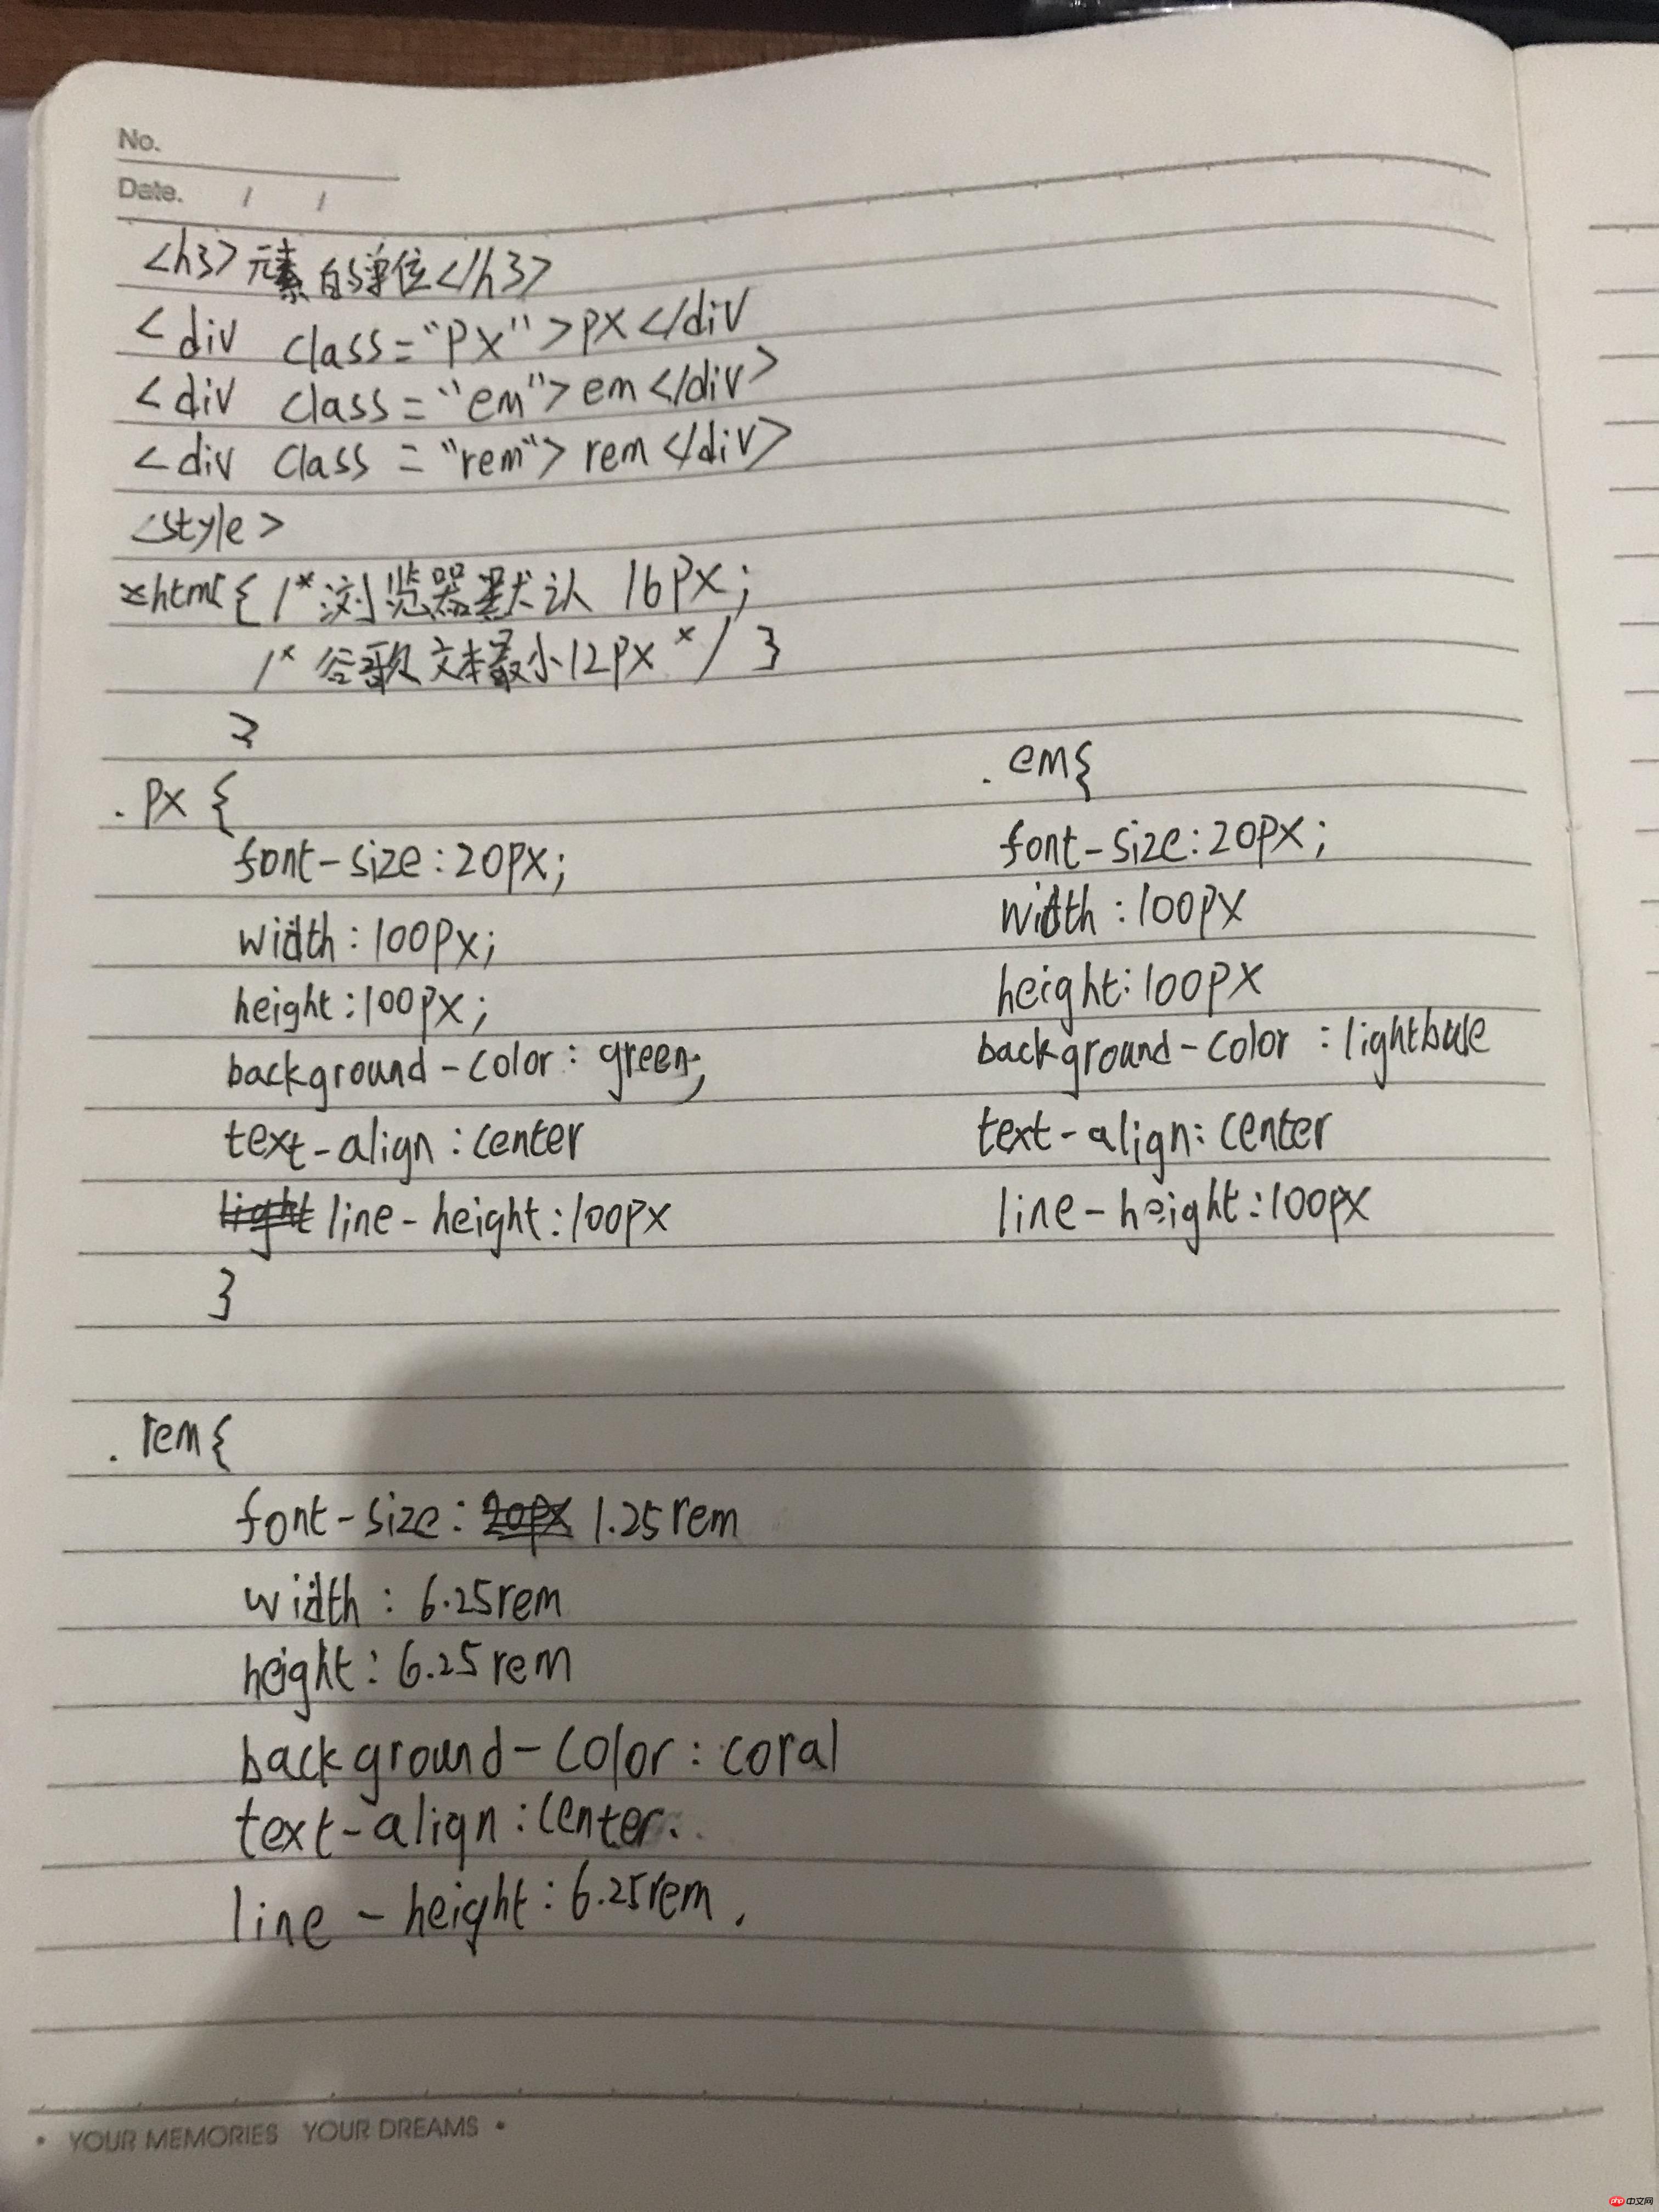 No.
Date. / /
<h3>元素的单位</h3>
<div class="px">px</div
<div class="em">em</div>
<div class="rem">rem</div>
<style>
html{ /*浏览器默认 16px;
/* 谷歌文本最小12px */ }
}
.px {
font-size:20px;
width:100px;
height:100px;
background-color: green;
text-align:center
line-height:100px
}
.em{
font-size:20px;
width:100px
height:100px
background-color:lightbule
text-align:center
line-height:100px
.rem{
font-size: 1.25rem
width: 6.25rem
height: 6.25rem
background-color: coral
text-align:center.
line-height: 6.25rem.
• YOUR MEMORIES YOUR DREAMS •
php 中文网